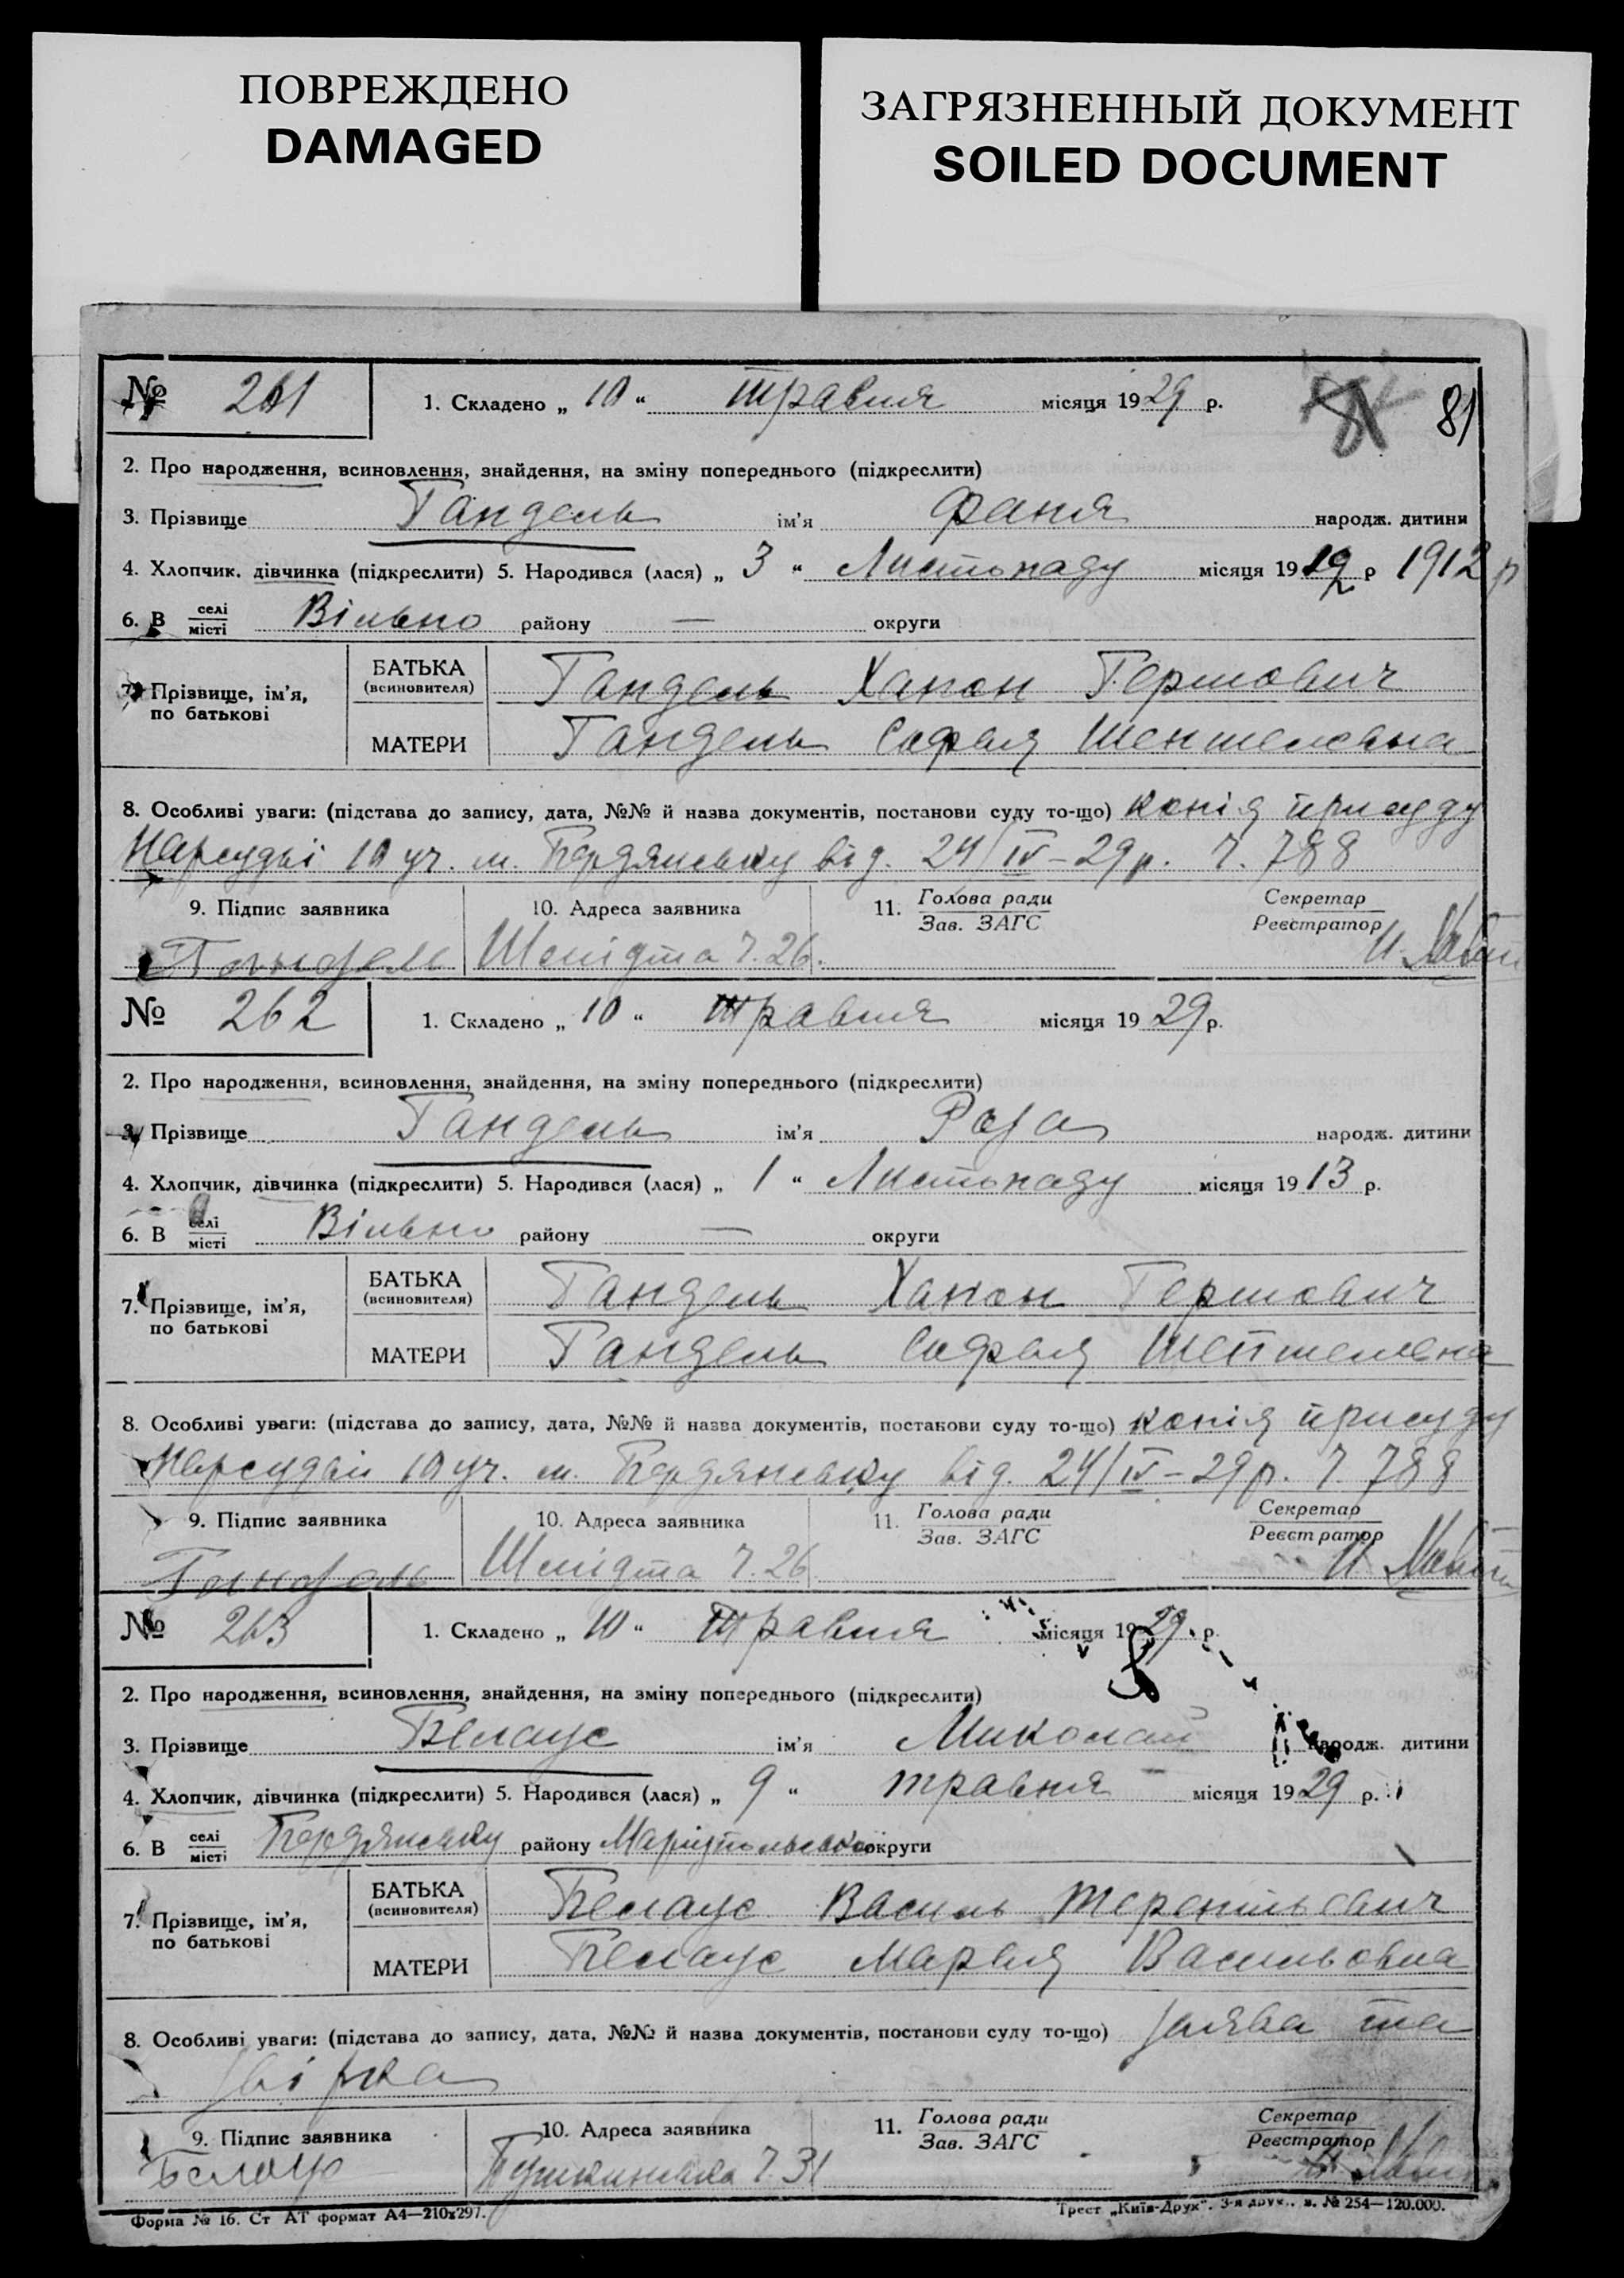 ПОВРЕЖДЕНО
DAMAGED
ЗАГРЯЗНЕННЫЙ ДОКУМЕНТ
SOILED DOCUMENT
№ 261 1. Складено „ 10 “ травня місяця 1929 р. 81
2. Про народження, всиновлення, знайдення, на зміну попереднього (підкреслити)
3. Прізвище Гандель ім’я Фаня народж. дитини
4. Хлопчик, дівчинка (підкреслити) 5. Народився (лася) „ 3 “ Листопаду місяця 1912 р 1912 р
6. В селі місті Вільно району — округи
7. Прізвище, ім’я, по батькові
БАТЬКА (всиновителя) Гандель Ханон Гершович
МАТЕРИ Гандель Софья
8. Особливі уваги: (підстава до запису, дата, №№ й назва документів, постанови суду то-що) копія присуду
Нарсудьі 10 уч. м. Бердянську від. 24/IV–29р. Ч. 788
9. Підпис заявника 10. Адреса заявника 11. Голова ради Зав. ЗАГС Секретар Реєстратор
Гандель Шмідта Ч. 26.
№ 262 1. Складено „ 10 “ травня місяця 1929 р.
2. Про народження, всиновлення, знайдення, на зміну попереднього (підкреслити)
3. Прізвище Гандель ім’я Роза народж. дитини
4. Хлопчик, дівчинка (підкреслити) 5. Народився (лася) „ 1 “ Листопаду місяця 1913 р.
6. В селі місті Вільно району — округи
7. Прізвище, ім’я, по батькові
БАТЬКА (всиновителя) Гандель Ханон Гершович
МАТЕРИ Гандель Софья
8. Особливі уваги: (підстава до запису, дата, №№ й назва документів, постанови суду то-що) копія присуду
Нарсудьі 10 уч. м. Бердянську від. 24/IV–29р. Ч. 788
9. Підпис заявника 10. Адреса заявника 11. Голова ради Зав. ЗАГС Секретар Реєстратор
Гандель Шмідта Ч. 26
№ 263 1. Складено „ 10 “ травня місяця 1929 р.
2. Про народження, всиновлення, знайдення, на зміну попереднього (підкреслити)
3. Прізвище Белаус ім’я Миколай народж. дитини
4. Хлопчик, дівчинка (підкреслити) 5. Народився (лася) „ 9 “ травня місяця 1929 р.
6. В селі місті Бердянську району Маріупольсько округи
7. Прізвище, ім’я, по батькові
БАТЬКА (всиновителя) Белаус Василь Терентьевич
МАТЕРИ Белаус Марья Васильовна
8. Особливі уваги: (підстава до запису, дата, №№ й назва документів, постанови суду то-що) заява та
звірка
9. Підпис заявника 10. Адреса заявника 11. Голова ради Зав. ЗАГС Секретар Реєстратор
Белаус Пушкинська Ч. 31
Форма № 16. Ст АТ формат А4—210х297. Трест „Київ-Друк“. 3-я друк., з. № 254—120.000.